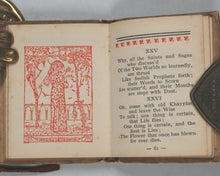 XXV
Why, all the Saints and Sages
who discuss'd
Of the Two Worlds so learnedly,
are thrust
Like foolish Prophets forth;
their Words to Scorn
Are scatter'd, and their Mouths
are stopt with Dust.
XXVI
Oh, come with old Khayyám,
and leave the Wise
To talk; one thing is certain,
that Life flies;
One thing is certain, and the
Rest is Lies;
The Flower that once has blown
for ever dies.